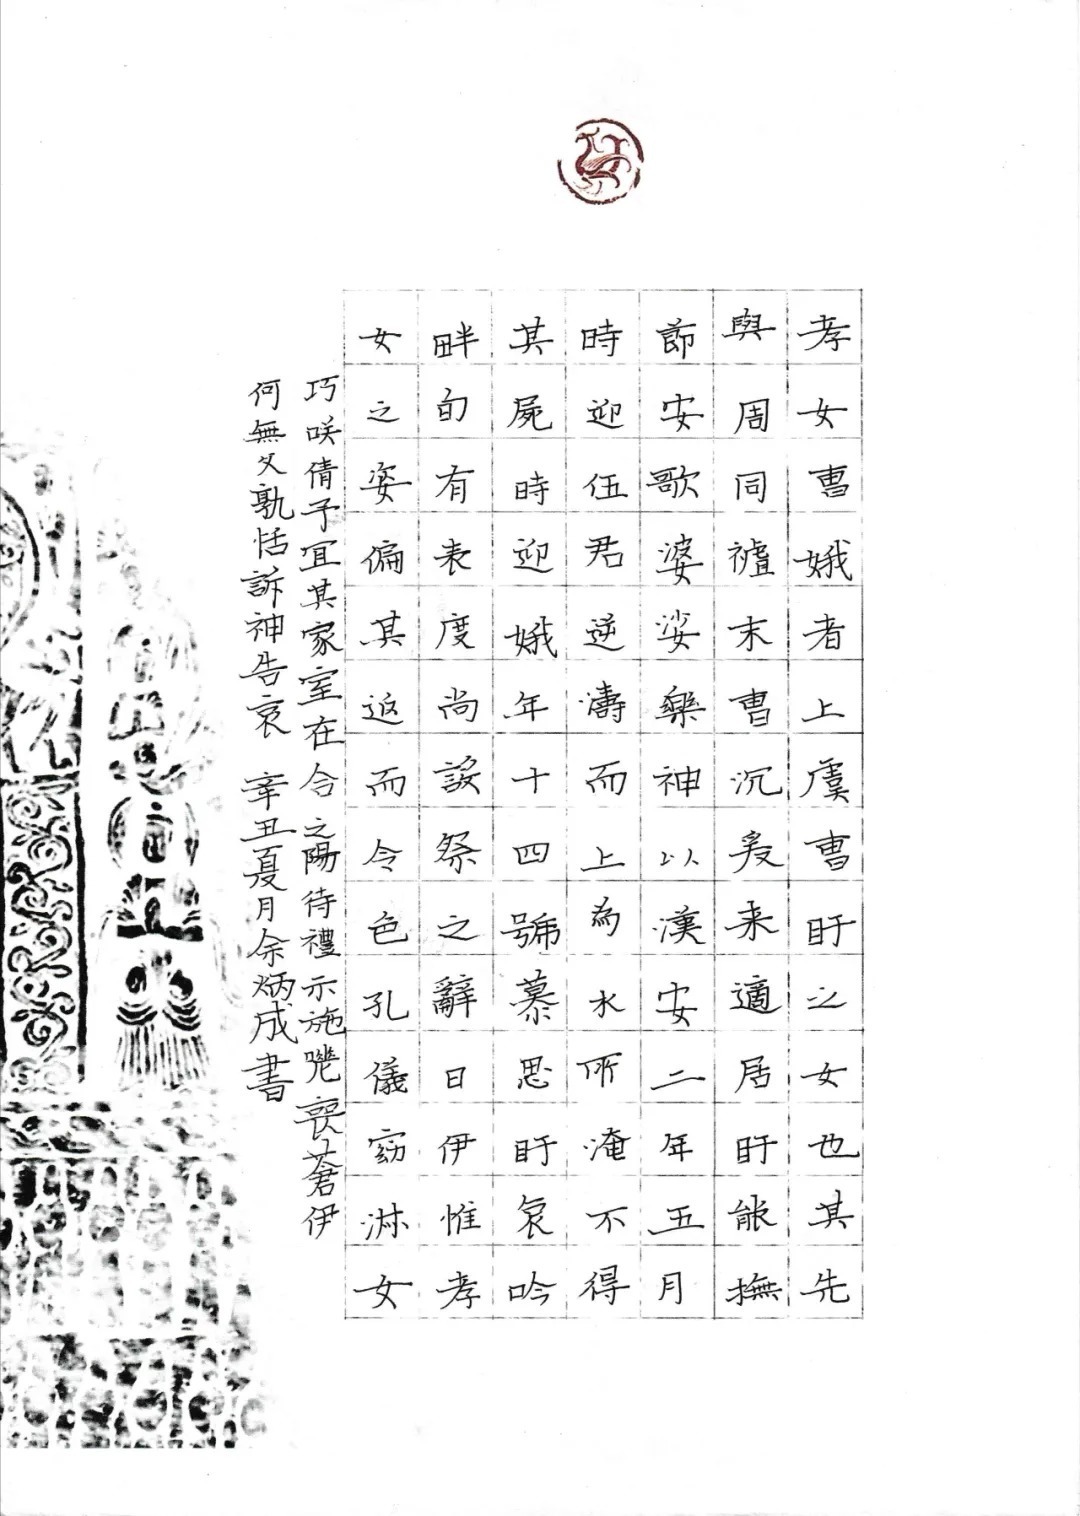 孝女曹娥者上虞曹盱之女也其先
與周同禋末曹沉爰来適居盱能撫
節安歌婆娑樂神以漢安二年五月
時迎伍君逆濤而上為水所淹不得
其屍時迎娥年十四號慕思盱哀吟
畔旬有表度尚設祭之辭曰伊惟孝
女之姿偏其返而令色孔儀窈淋女
巧咲倩予宜其家室在合之陽待禮示施嗟喪蒼伊
何無父孰恬訴神告哀 辛丑夏月余炳成書